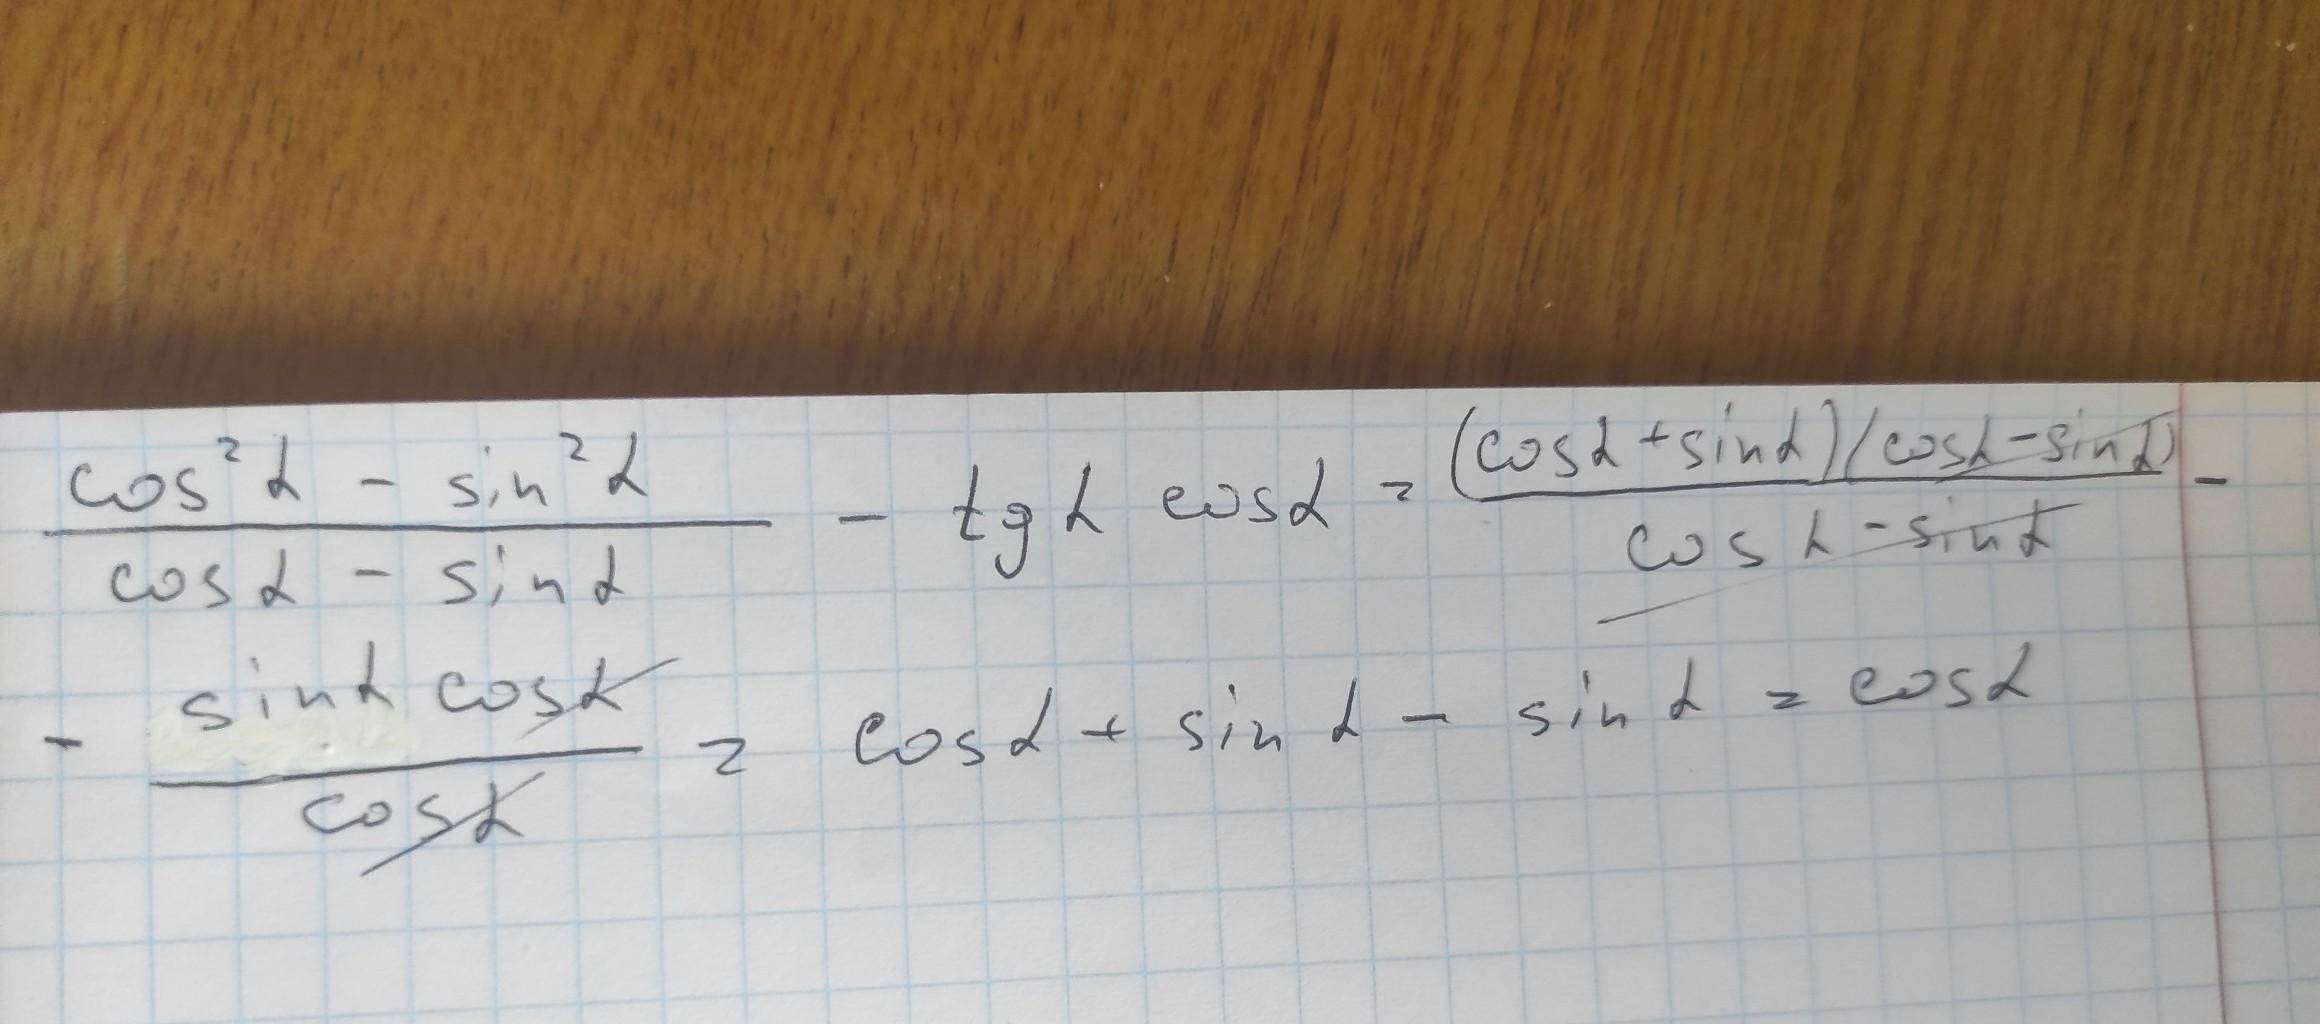 (cos²α - sin²α)/(cosα - sinα) - tgα cosα = (cosα + sinα)(cosα - sinα)/(cosα - sinα) -
- (sinα cosα)/(cosα) = cosα + sinα - sinα = cosα